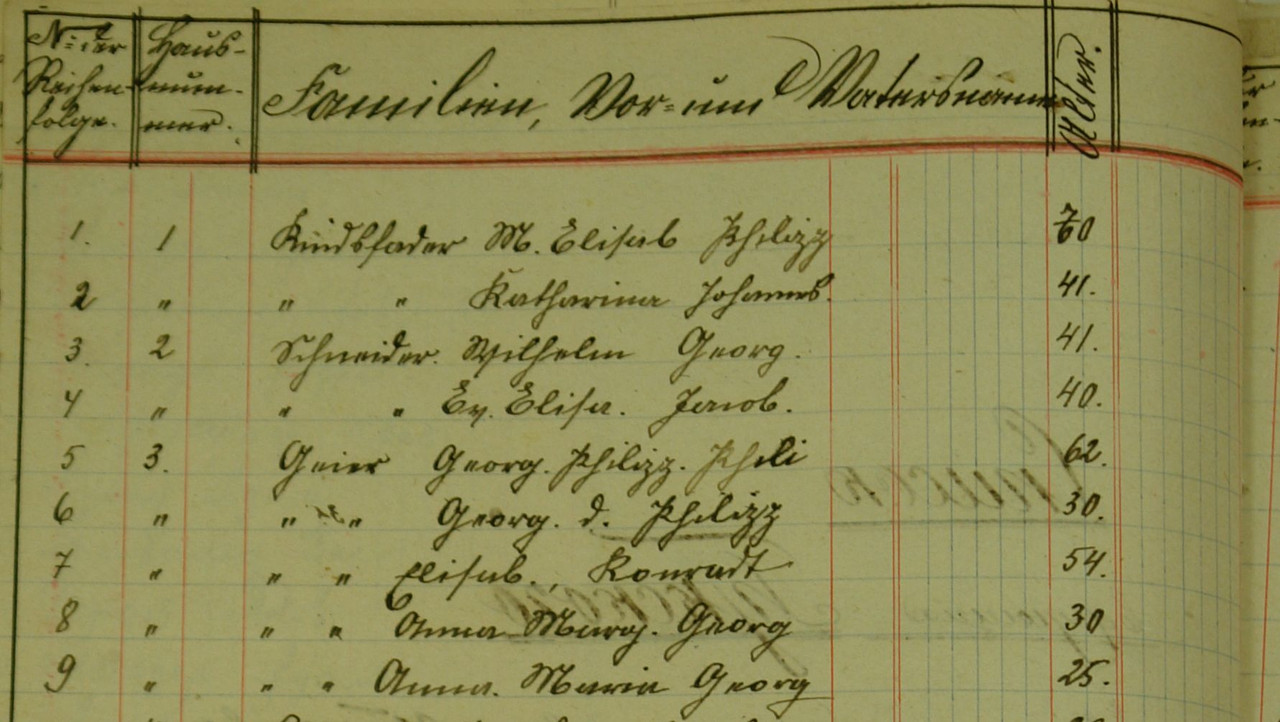 No der Reihen- folge. Haus- num- mer. Familien, Vor- und Vatersname Alter.
1. 1 Kindsfader M. Elisab Philipp 70
2 " " " Katharina Johannes. 41.
3. 2 Schneider. Wilhelm Georg. 41.
4 " " " Ev. Elisa. Jacob. 40.
5 3. Geier Georg. Philipp. Phili 62.
6 " " " Georg. d. Philipp 30.
7 " " " Elisab., Konradt 54.
8 " " " Anna Marg. Georg 30
9 " " " Anna. Maria Georg 25.